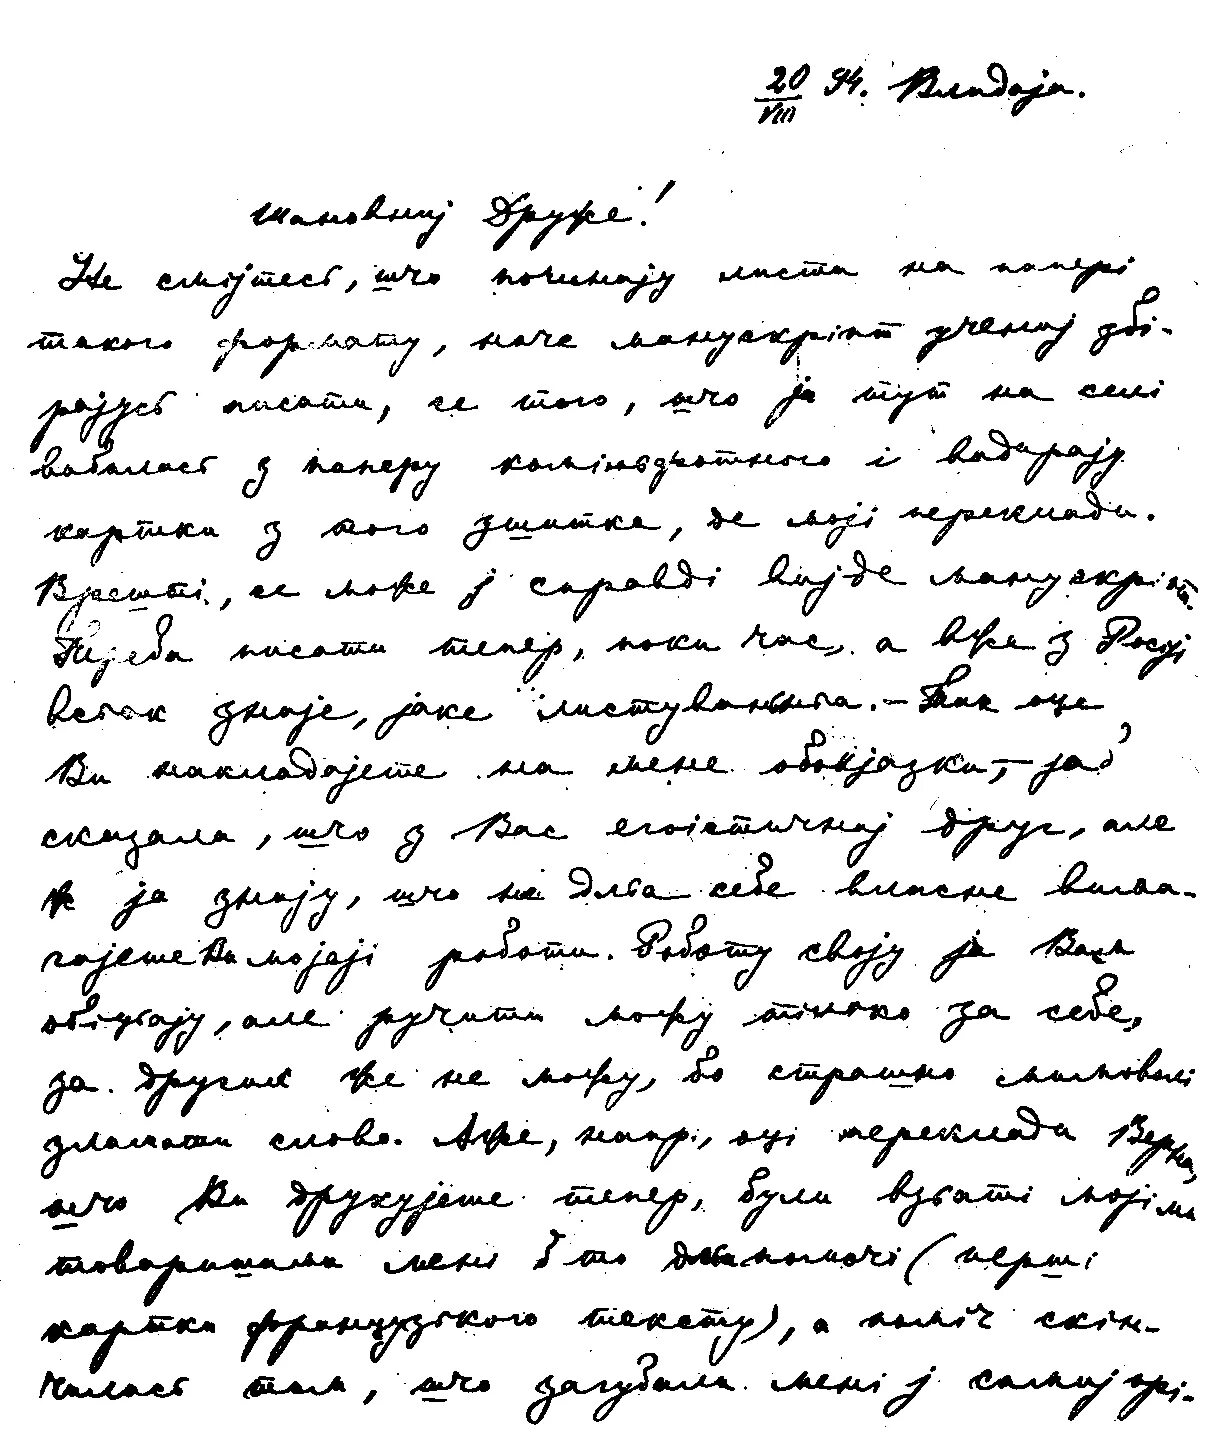 20/VIII 94. Владаја.
Шановниј Друже!
Не сміјтесь, шчо починају листа на папері
такого формату, наче манускріпт ученіј збі-
рајусь писати, се того, шчо ја тут на селі
вибилась з паперу комільфотного і видирају
картки з того зшитка, де мојі переклади.
Врешті, се може ј справді вијде манускріпт.
Треба писати тепер, поки час, а вже з Росіјі
всьак знаје, јаке листуванньа. – Так оце
Ви накладајете на мене обовјазки, – јаб
сказала, шчо з Вас егоістичниј друг, але
ж ја знају, шчо не дльа себе власне вима-
гајете Ви мојејі роботи. Роботу своју ја Вам
обіцьају, але ручити можу тілько за себе,
за других же не можу, бо страшно мимоволі
зламати слово. Адже, напр., оці переклади Верна,
шчо Ви друкујете тепер, були взьаті мојіми
товаришами мені б то дльа помочі (перші
картки французського тексту), а поміч скін-
чилась тим, шчо загубили мені ј самиј орі-